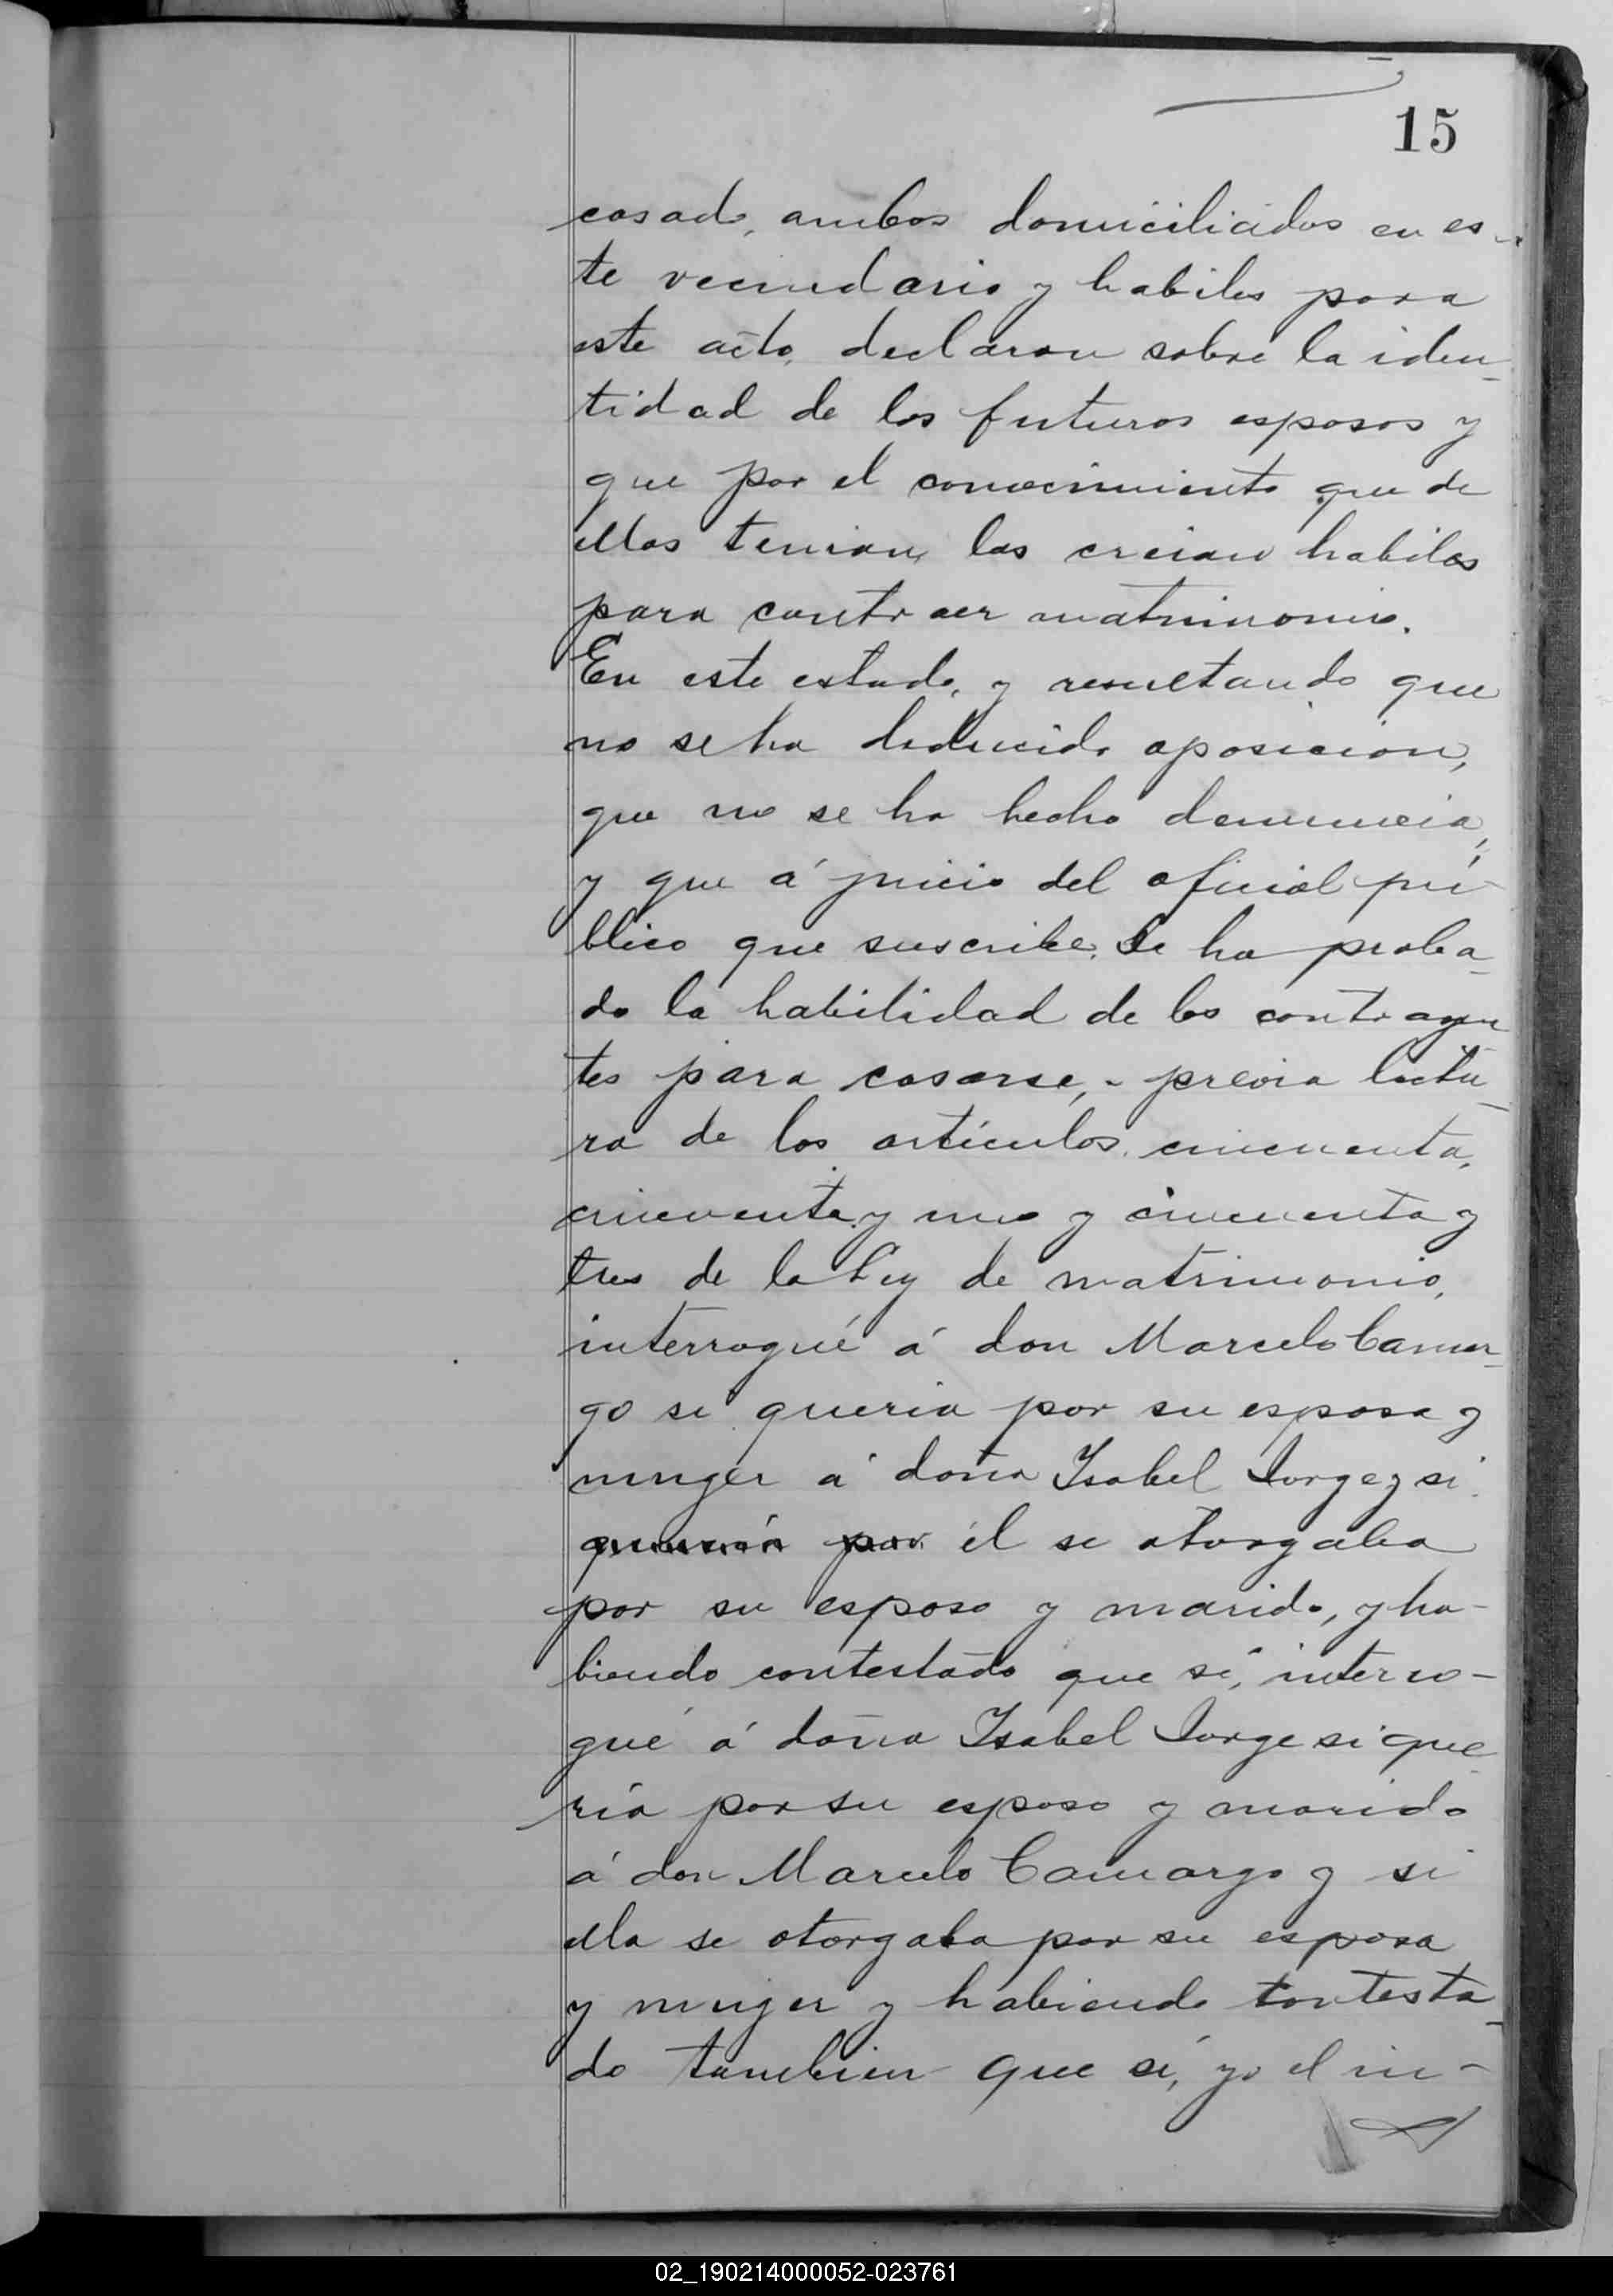 15
casado, ambos domiciliados en es-
te vecindario y habiles para
este acto, declaron sobre la iden-
tidad de los futuros esposos y
que por el conocimiento que de
ellos tenian, los creian habiles
para contraer matrimonio.
En este estado, y resultando que
no se ha deducido oposicion,
que no se ha hecho denuncia,
y que á juicio del oficial pú-
blico que suscribe, se ha proba-
do la habilidad de los contrayen
tes para casarse, - previa lectu-
ra de los artículos cincuenta,
cincuenta y uno y cincuenta y
tres de la Ley de matrimonio,
interrogué á don Marcelo Camar-
go si queria por su esposa y
muger á doña Isabel Jorge y si
queria por él se otorgaba
por su esposo y marido, y ha-
biendo contestado que sí, interro-
gué á doña Isabel Jorge si que-
ría por su esposo y marido
á don Marcelo Camargo y si
ella se otorgaba por su esposa
y muger y habiendo contesta-
do tambien que sí, yo el in-
02_190214000052-023761